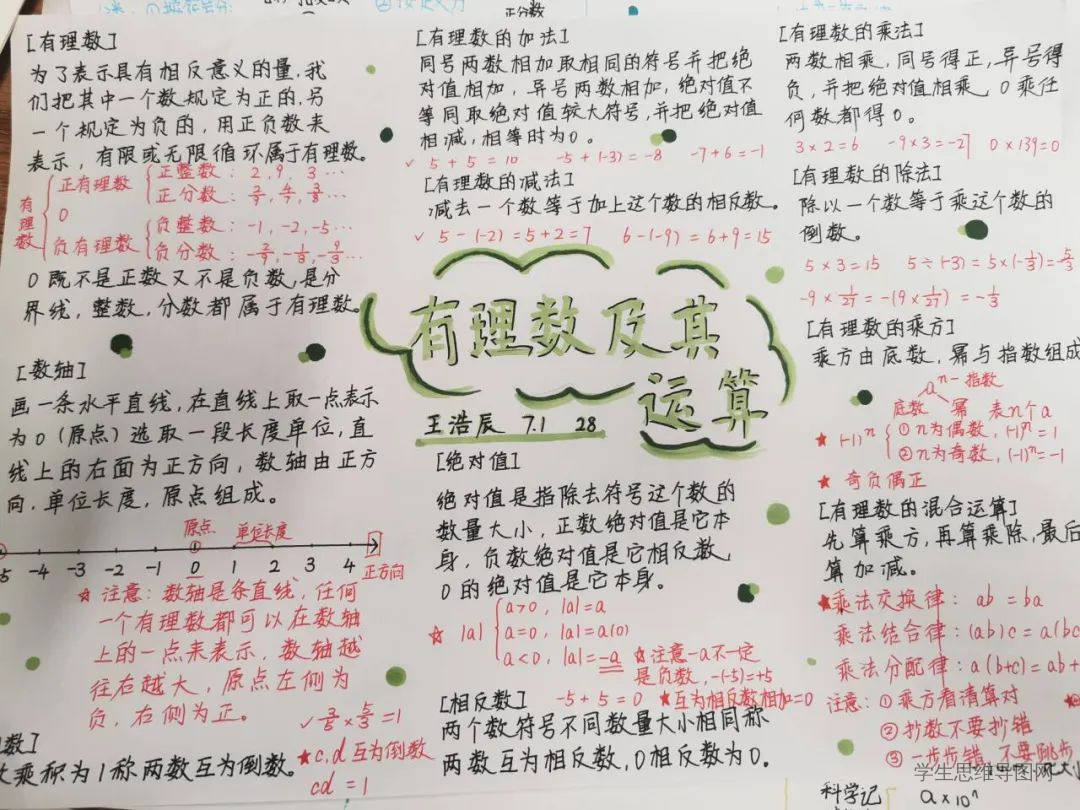 正分数
[有理数]
为了表示具有相反意义的量,我
们把其中一个数规定为正的,另
一个规定为负的,用正负数来
表示,有限或无限循环属于有理数。
有理数
正有理数
正整数: 2, 9, 3 …
正分数:
0
负有理数
负整数: -1, -2, -5…
负分数:
0既不是正数又不是负数,是分
界线,整数,分数都属于有理数。
[数轴]
画一条水平直线,在直线上取一点表示
为0(原点)选取一段长度单位,直
线上的右面为正方向,数轴由正方
向,单位长度,原点组成。
原点 单位长度
-5 -4 -3 -2 -1 0 1 2 3 4 正方向
★ 注意:数轴是条直线,任何
一个有理数都可以在数轴
上的一点来表示,数轴越
往右越大,原点左侧为
负,右侧为正。
数]
乘积为1称两数互为倒数。
★c,d互为倒数
cd = 1
[有理数的加法]
同号两数相加取相同的符号并把绝
对值相加,异号两数相加,绝对值不
等同取绝对值较大符号,并把绝对值
相减,相等时为0。
✓ 5 + 5 = 10 -5 + (-3) = -8 -7 + 6 = -1
[有理数的减法]
减去一个数等于加上这个数的相反数。
✓ 5 - (-2) = 5 + 2 = 7 6 - (-9) = 6 + 9 = 15
有理数及其
运算
王浩辰 7.1 28
[绝对值]
绝对值是指除去符号这个数的
数量大小,正数绝对值是它本
身,负数绝对值是它相反数,
0的绝对值是它本身。
☆ |a|
a>0, |a|=a
a=0, |a|=a(0)
a<0, |a|=-a
☆注意-a不一定
是负数,-(-5)=+5
[相反数] -5 + 5 = 0 ★互为相反数相加=0
两个数符号不同数量大小相同称
两数互为相反数,0相反数为0。
[有理数的乘法]
两数相乘,同号得正,异号得
负,并把绝对值相乘,0乘任
何数都得0。
3 × 2 = 6 -9 × 3 = -27 0 × 139 = 0
[有理数的除法]
除以一个数等于乘这个数的
倒数。
5 × 3 = 15 5 ÷ (-3) = 5 × (-1/3) = -5/3
-9 × 1/27 = -(9 × 1/27) = -1/3
[有理数的乘方]
乘方由底数,幂与指数组成
aⁿ - 指数
底数 幂 表n个a
★ (-1)ⁿ
① n为偶数, (-1)ⁿ = 1
② n为奇数, (-1)ⁿ = -1
★ 奇负偶正
[有理数的混合运算]
先算乘方,再算乘除,最后
算加减。
★乘法交换律: ab = ba
乘法结合律: (ab)c = a(bc
乘法分配律: a(b+c) = ab+
注意: ①乘方看清算对
②抄数不要抄错
③一步步错,不要跳步
科学记
a×10ⁿ
学生思维导图网